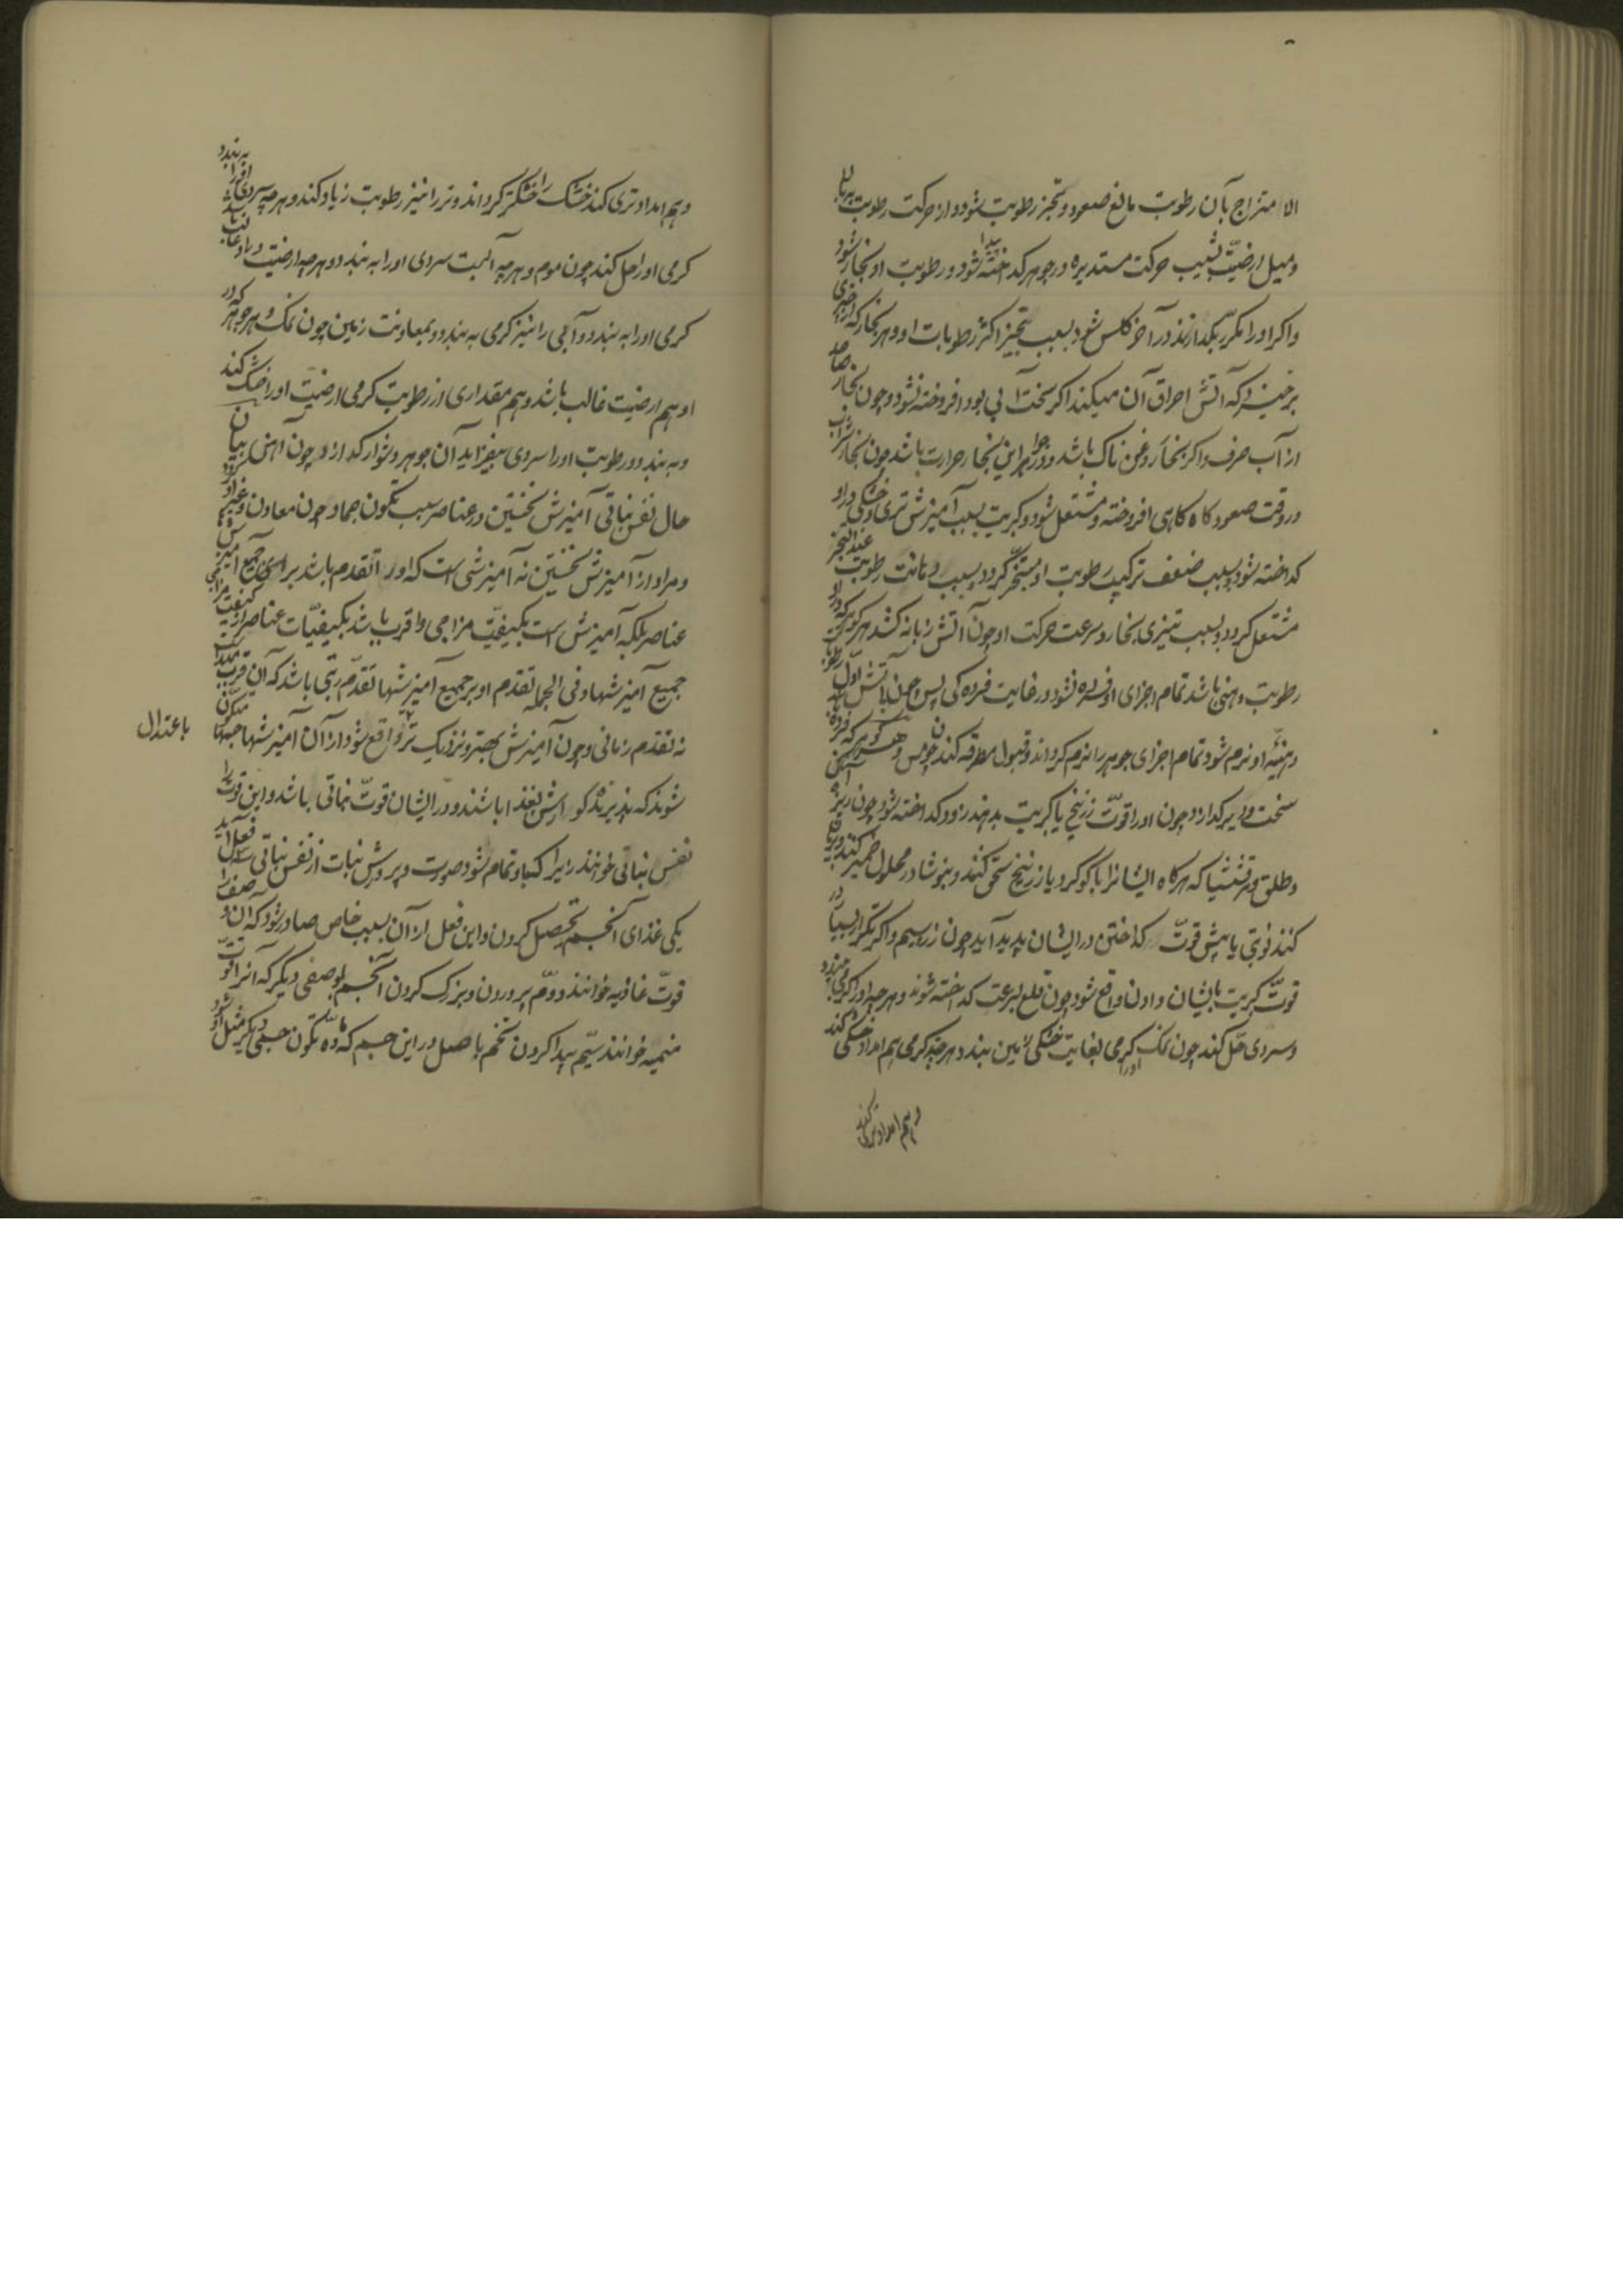 الامتزاج بآن رطوبت مانع صعود و تبخر رطوبت شود و از حرکت رطوبت ببالا
و میل ارضیت بنشیب حرکت مستدیره در جوهر کداخته پیدا شود و رطوبت او بخار شود
و اکر او را مکرر بکدازند در آخر کلس شود بسبب تبخیر اکثر رطوبات او و هر بخار که از چیزی
برخیزد که آتش احراق آن میکند اکر سخت آبی بود افروخته نشود و چون بخار خاصه
از آب صرف و اکر بخار روغن ناک باشد و در جوار این بخار حرارت باشد چون بخار شراب
در وقت صعود کاه کاهی افروخته و مشتعل شود و کبریت بسبب آمیزش تری و خشکی در او
کداخته شود و بسبب ضعف ترکیب رطوبت او متبخر کردد و بسبب دهانت رطوبت عند التبخر
مشتعل کردد و بسبب تیزی بخار و سرعت حرکت او چون آتش زبانه کشد هر کوهر که در او
رطوبت دهنی باشد تمام اجزای او فسرده نشود در غایت فسردکی پس چون باتش اول رطوبت
دهنیه او نرم شود تمام اجزای جوهر را نرم کرداند و قبول مطرقه کند چون مس و هر کوهر که فسرده
سخت و دیر کدازد چون او را قوت زرنیخ یا کبریت بدهند زود کداخته شود چون ریزه آهن
و طلق و مرقشیشا که هرکاه ایشانرا با کوکرد یا زرنیخ سحق کنند و بنوشادر محلول خمیر کنند و بریان
کنند نوبتی یا بیش قوت کداختن در ایشان پدید آید چون زر و سیم و اکر تکرار بسیار در
قوت کبریت بایشان دادن واقع شود چون قلع بسرعت کداخته شوند و هر چه او را کرمی ببندد
و سردی حل کند چون نمک او را کرمی بغایت خشکی زمین ببندد و هر چیز کرمی هم امداد خشکی کند
و هم امداد تری کند
و هم امداد تری کند خشک را خشکتر کرداند و تر را نیز رطوبت زیاد کند و هر چه سردی او را ببندد
کرمی او را حل کند چون موم و هر چه آبست سردی او را به بندد و هر چه ارضیت در او غالب باشد
کرمی او را به بندد و آبی را نیز کرمی به بندد و بمعاونت زمین چون نمک و هر جوهر که در
او هم ارضیت غالب باشد و هم مقداری از رطوبت کرمی ارضیت او را خشک کند
و به بندد و رطوبت او را سردی بیفزاید آن جوهر دشوار کدازد چون آهن بیان
حال نفس نباتی آمیزش نخستین در عناصر سبب تکون جماد چون معادن و غیره کردد
و مراد از آمیزش نخستین نه آمیزشی است که او را تقدم باشد بر اسری جمیع آمیزش
عناصر بلکه آمیزش است بکیفیت مزاجی و اقرب باشد بکیفیات عناصر از کیفیت مزاجی
جمیع آمیزشها و فی الجمله تقدم او بر جمیع آمیزشها تقدم رتبی باشد که آن قرب بمبداست
نه تقدم زمانی و چون آمیزش بهتر و نزدیک تر باعتدال واقع شود از آن آمیزشها جسمها متکون
شوند که پذیرنده کوارش بغذا باشند و در ایشان قوت نمائی باشد و این قوت را
نفس نباتی خوانند زیرا که باو تمام شود صورت و پرورش نبات از نفس نباتی سه فعل آید
یکی غذای آنجسم تحصیل کردن و این فعل از آن بسبب خاص صادر شود که آن وصف را
قوت غاذیه خوانند دوم پروردن و بزرک کردن آنجسم بوصفی دیکر که آنرا قوت
منمیه خوانند سیم پیدا کردن تخم باصل در این جسم که ماده تکون جسمی دیکر مثل او شود